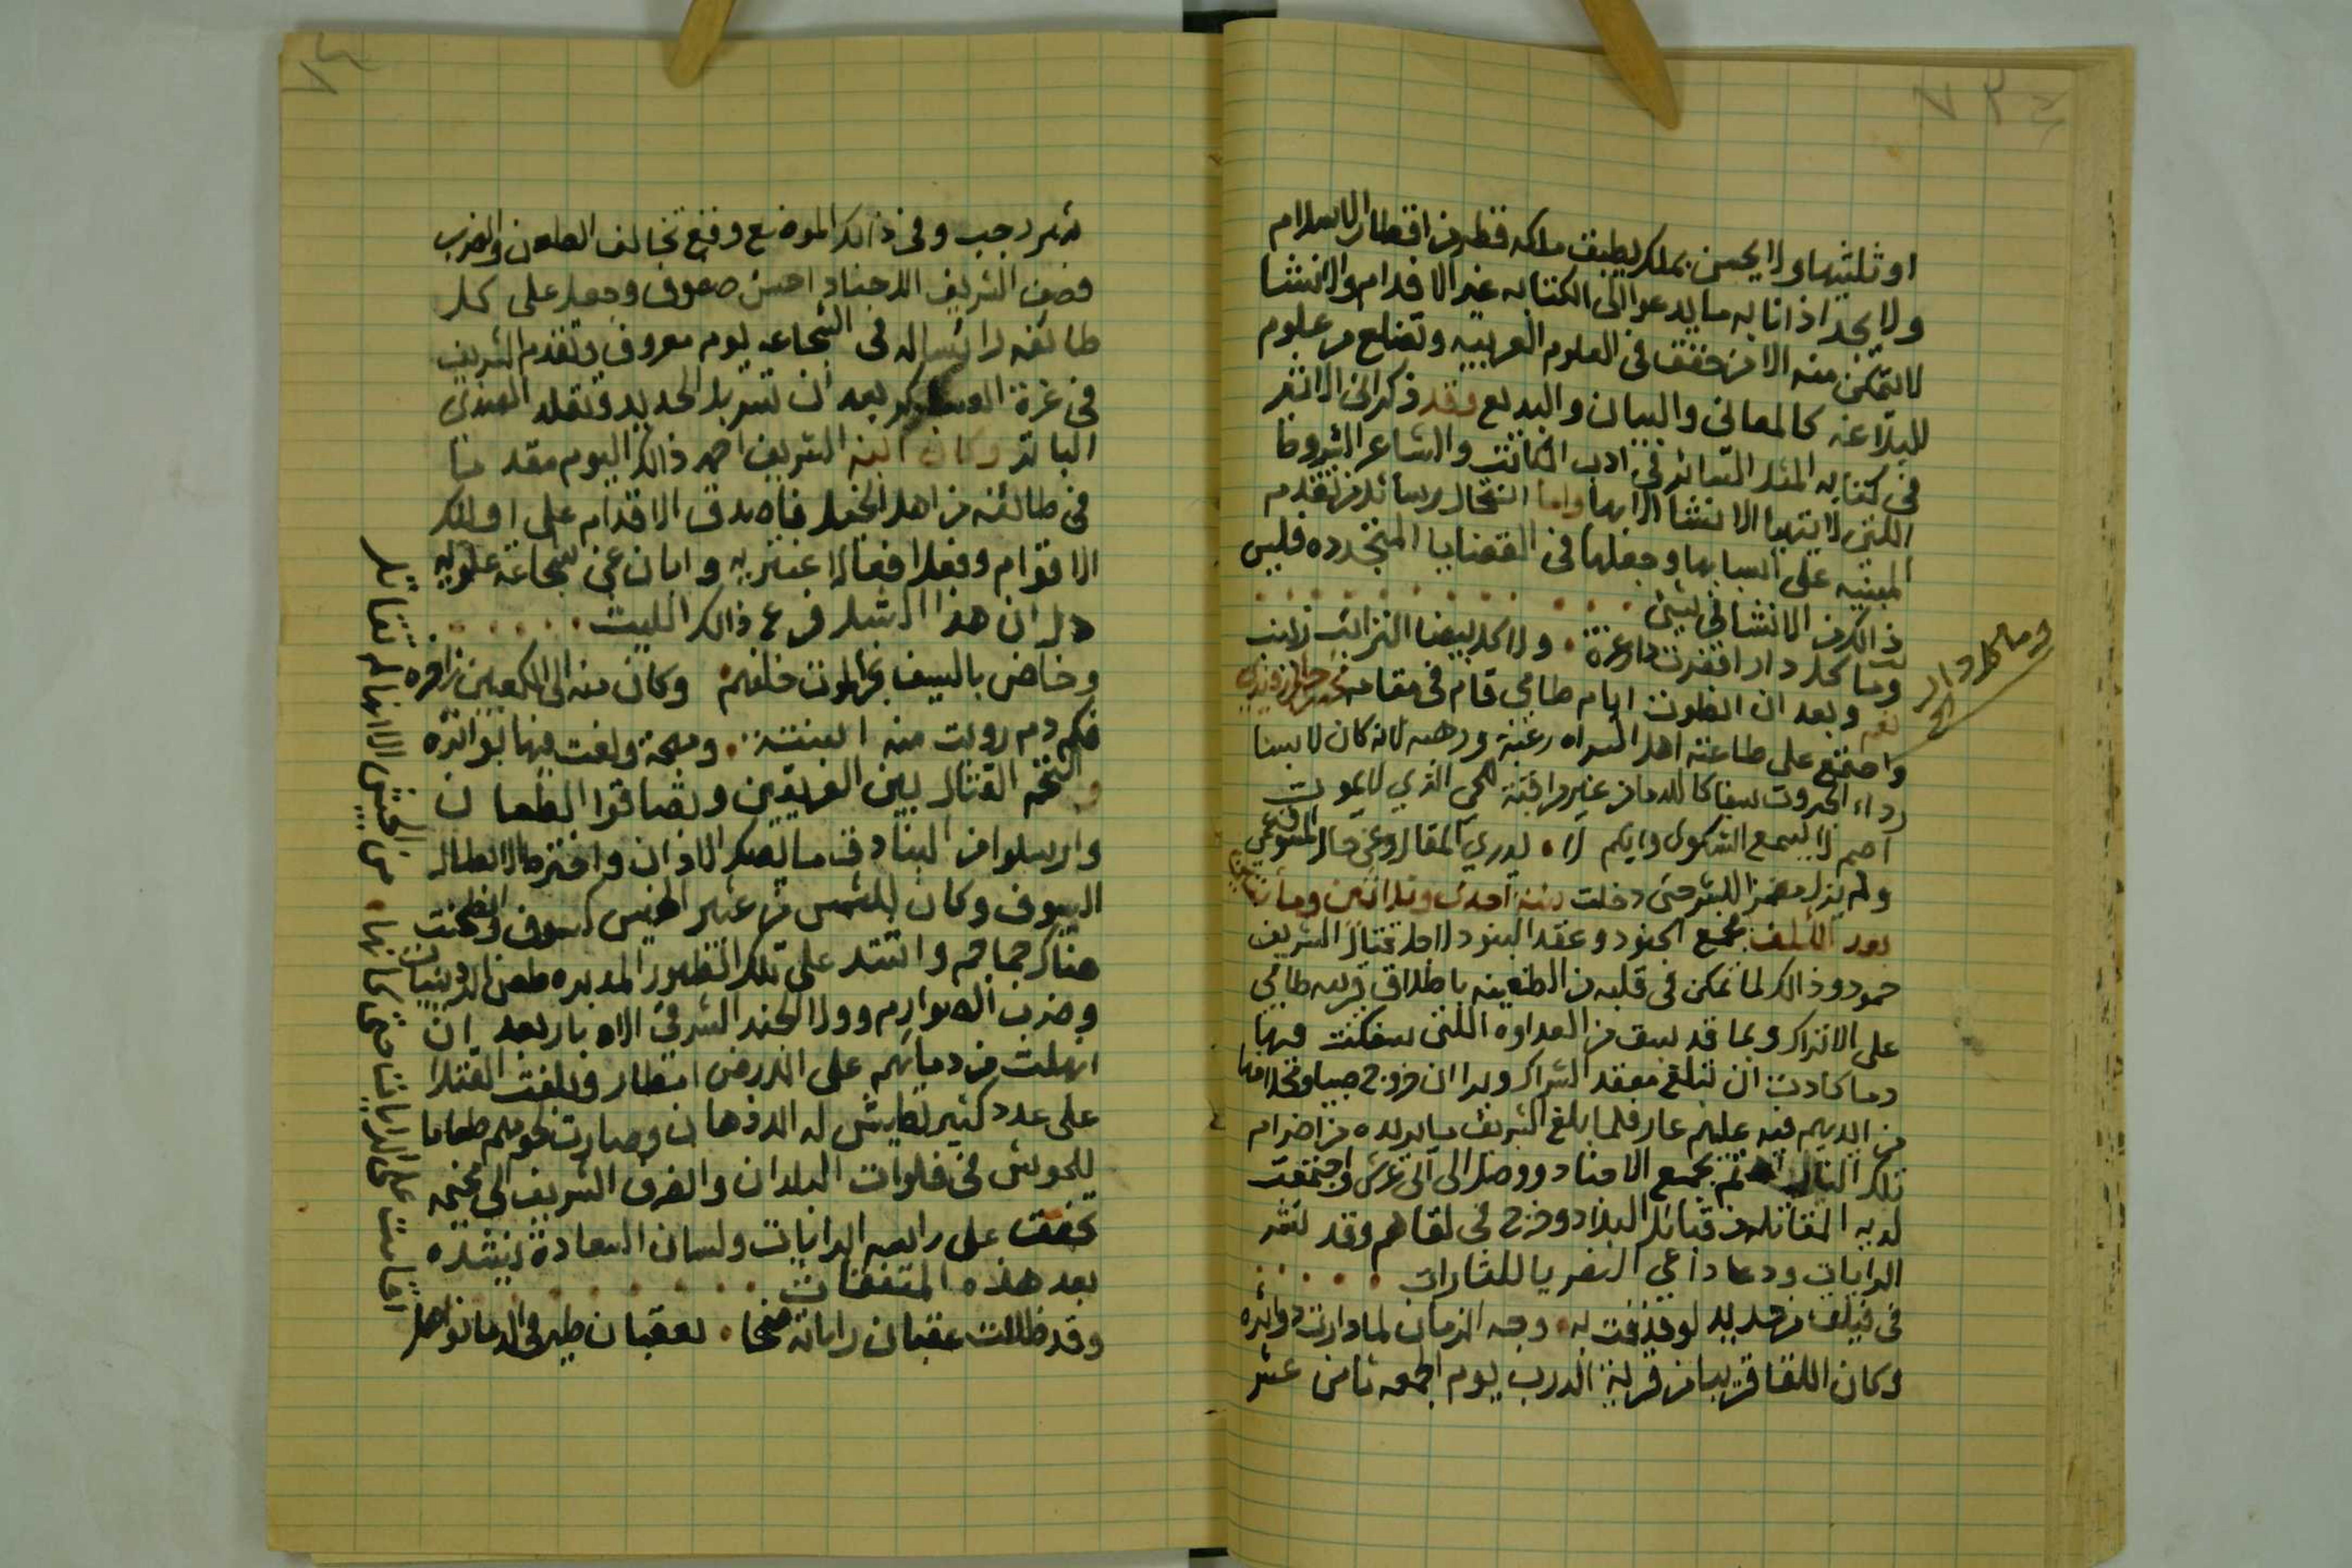 او ثلثيها ولا يحسن بملك يطبق ملكه قطر من اقطار الاسلام
ولا يجد اذانا به ما يدعوا الى الكتابه غير الاقدام والانشا
لا يتمكن منه الا من حقق في العلوم العربيه وتضلع من علوم
البلاغه كالمعاني والبيان والبديع وقد ذكر ابن الاثير
في كتابه المثل السائر في ادب الكاتب والشاعر الشروط
اللتي لا يتهيا الانشا الا بها واما انتحال رسائل من تقدم
المبنيه على اسبابها وجعلها في القضايا المتجدده فليس
ذالك من الانشا في شيئ
وما كل دار اقفرت دارة عزة . ولا كل بيضا الترائب زينب
نعم وبعد ان انطوت ايام طامي قام في مقامه محمد بن احمد
واجتمع على طاعته اهل السراه رغبة ورهبه لانه كان لابسا
رداء الجبروت سفاكا للدما من غير مراقبة للحي الذي لا يموت
اصم لا يسمع الشكوى وابكم لا . يدري المقال وعن حال المتوفي عمي
ولم يزل مضمرا للشر حتى دخلت سنة احدى وثلاثين ومأتين
بعد الألف فجمع الجنود وعقد البنود لاجل قتال الشريف
حمود وذالك لما تمكن في قلبه من الظغينه باطلاق قريبه طامي
على الاتراك وبما قد سبق من العداوه اللتي سفكت فيها
دما كادت ان تبلغ معقد الشراك وبرا ان خروج صبيا ومخلافها
من ايديهم فيه عليهم عار فلما بلغ الشريف ما يريده من اضرام
تلك النار اهتم بجمع الاجناد ووصل الى ابي عريش واجتمعت
لديه المقاتله من قبائل البلاد وخرج في لقاهم وقد نشر
الرايات ودعا داعي النفر يا للثارات
في فيلق من حديد لو قذفت به . وجه الزمان لما دارت دوائره
وكان اللقا قريبا من قرية الدرب يوم الجمعه ثامن عشر
وما كل دار
الخ
شهر رجب وفي ذالك الموضع وقع تخالف الطعن والضرب
فصف الشريف الاجناد احسن صفوف وجعل على كل
طائفه رائسا له في الشجاعه يوم معروف وتقدم الشريف
في غرة العسكر بعد ان تسربل الحديد وتقلد الهندي
الباتر وكان ابنه الشريف احمد ذالك اليوم مقدما
في طائفه من اهل الخيل فاصدق الاقدام على اولئك
الاقوام وفعل افعالا عنتريه وابان عن شجاعة علويه
دل ان هذا الشبل فرع ذالك الليث
وخاض بالسيف بحر الموت خلفهم . وكان منه الى الكعبين زاخره
فكم دم رويت منه اسنته . ومهجة ولغت فيها بواتره
والتحم القتال بين الفريقين وتصادقوا الطعان
وارسلوا من البنادق ما يصك الاذان واخترط الابطال
السيوف وكان للشمس من عثير الخيس كسوف وطحنت
هناك جماجم واشتد على تلك الظهور المدبره طعن الردينيات
وضرب الصوارم وولا الجند الشرقي الادبار بعد ان
انهلت من دمائهم على الارض امطار وبلغت القتلا
على عدد كثير تطيش له الاذهان وصارت لحومهم طعاما
للحوش في فلوات البلدان وانصرف الشريف الى مخيمه
تخفق على راسه الرايات ولسان السعادة ينشده
بعد هذه المتفقات
وقد ظللت عقبان راياته ضحا . بعقبان طير في الدما نواهل
اقامت على الرايات حتى كانها . من الجيش الا انها لم تقاتل